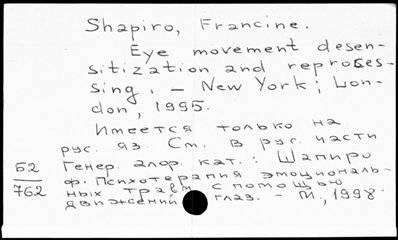 Shapiro, Francine.
Eye movement desen-
sitization and reproses-
sing. - New York; Lon-
don, 1995.
Имеется только на
рус. яз. См. в рус. части
Генер. алор. кат.: Шапиро
Ф. Психотерапия эмоциональ-
ных травм с помощью
движений глаз. - М., 1998.
Б2
762